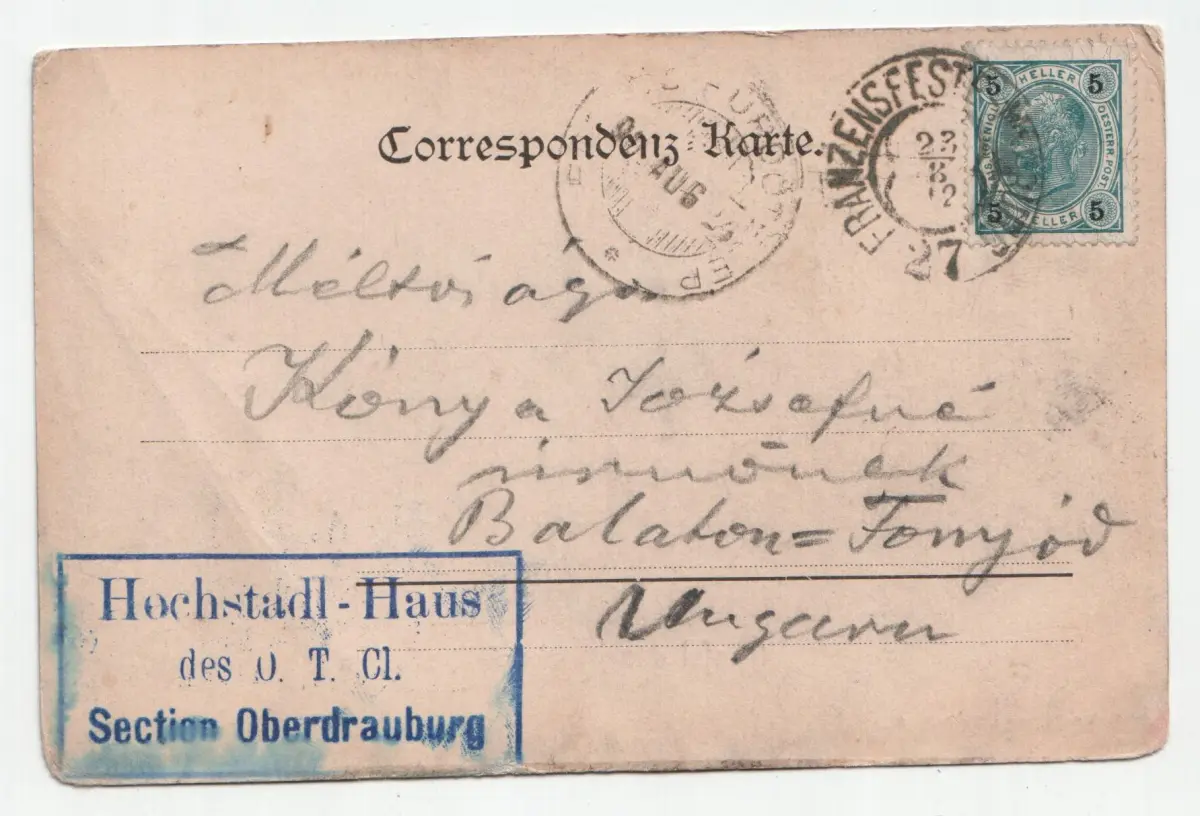 Correspondenz Karte.
FRANZENSFEST
23
8
2
27
5 HELLER 5
OESTERR. POST.
5 HELLER 5
AUG
Méltóságos
Kónya Józsefné
úrnőnek
Balaton=Fonyód
Ungarn
Hochstadl-Haus
des O. T. Cl.
Section Oberdrauburg